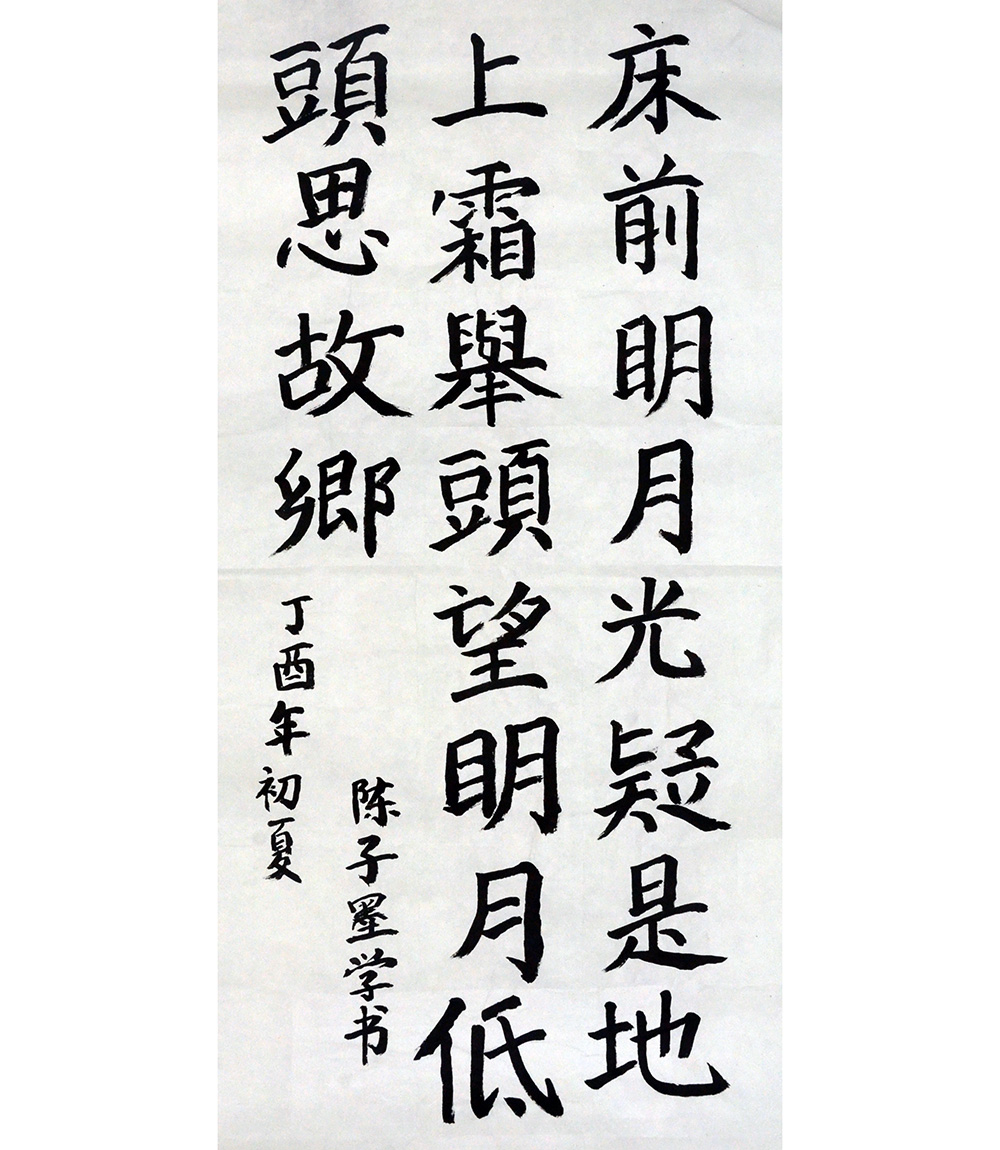 床前明月光疑是地
上霜舉頭望明月低
頭思故鄉
陈子墨学书
丁酉年初夏